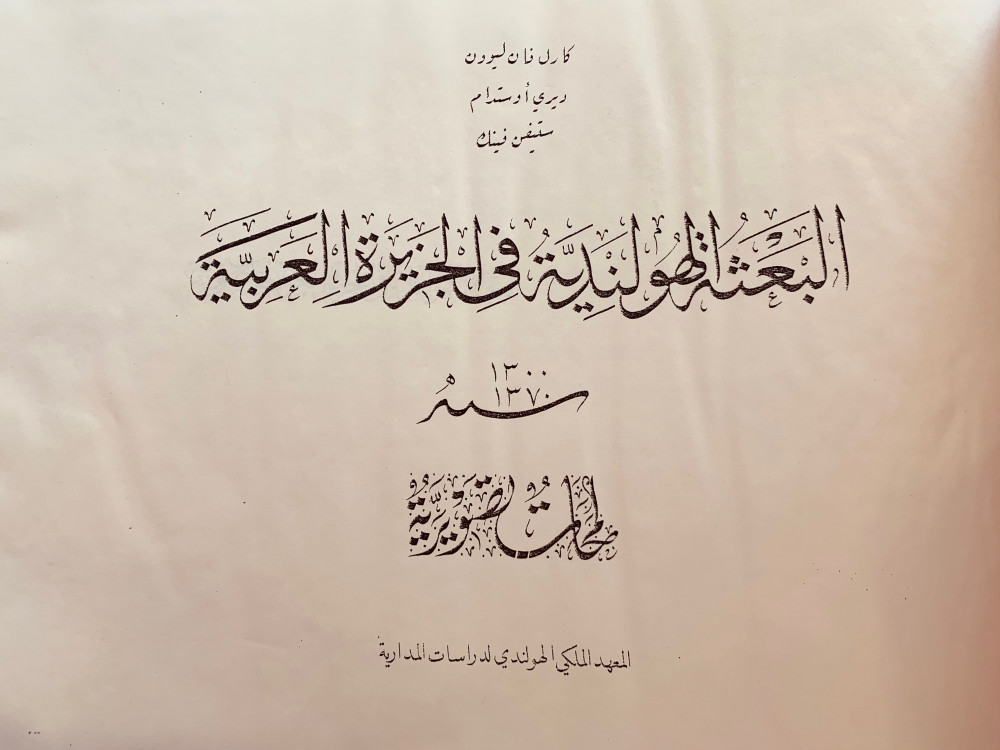 كارل فان ليوون
ديري أوستدام
ستيفن فينك
البَعْثَة الهُولَنْدِيَّةُ فِي الجَزِيرَةِ العَرَبِيَّةِ
١٣٠٠
١٣٧٠
سنه
لمحاتٌ تصْوِيرِيَّةٌ
المعهد الملكي الهولندي لدراسات المدارية